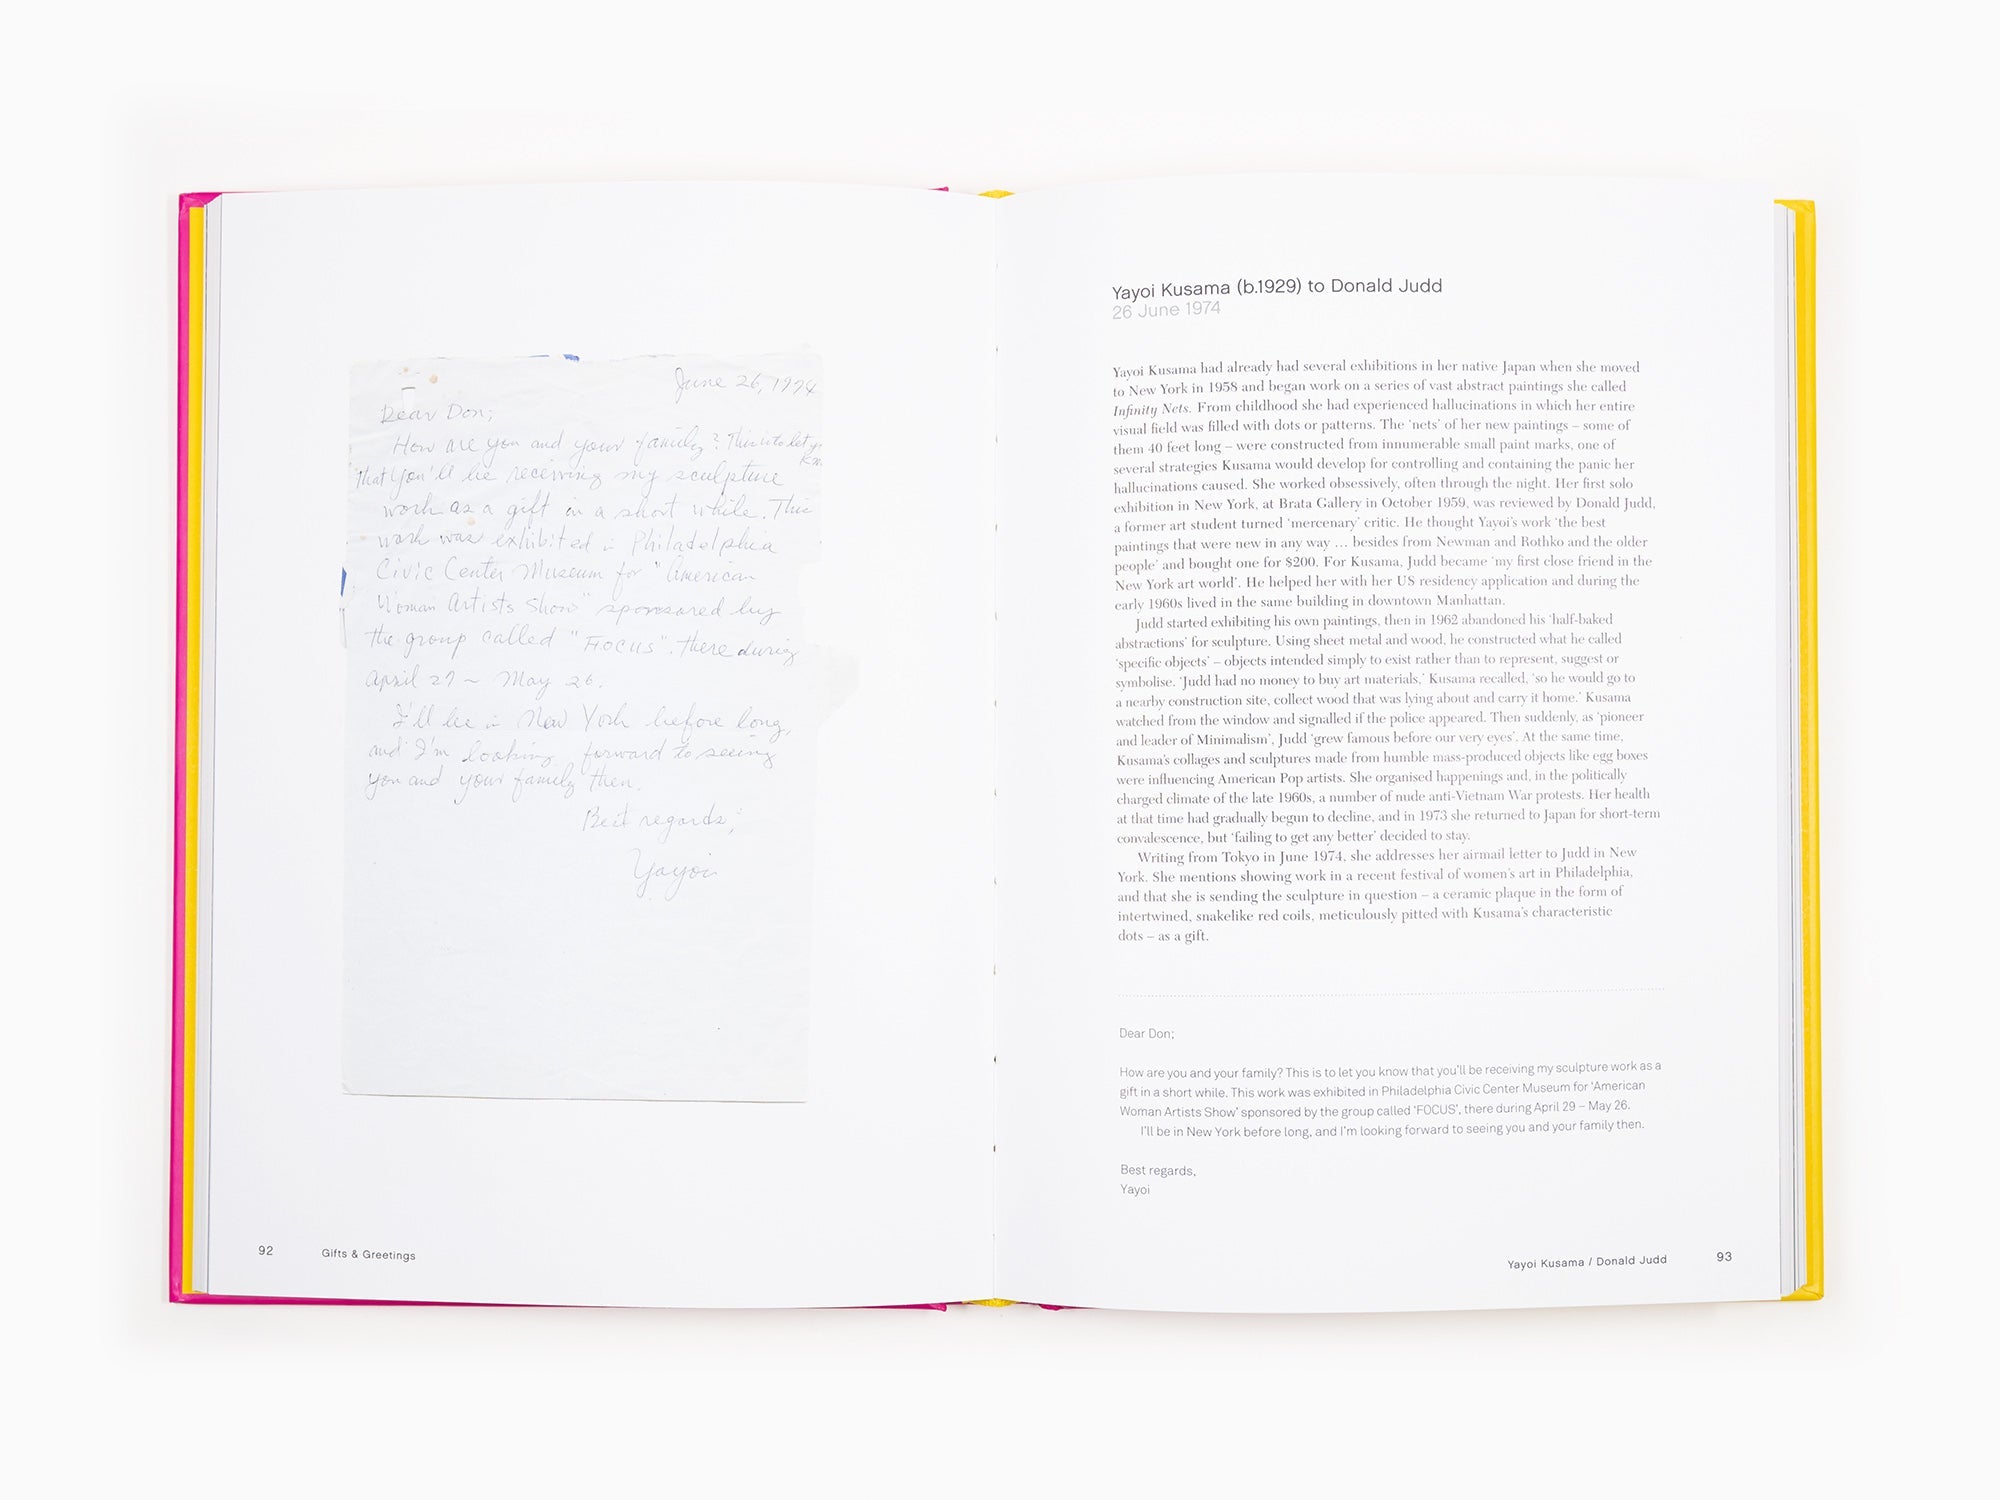 June 26, 1974
Dear Don;
How are you and your family? This is to let y
Kno
that you'll be receiving my sculpture
work as a gift in a short while. This
work was exhibited in Philadelphia
Civic Center Museum for "American
Woman Artists Show" sponsored by
the group called "FOCUS". there during
april 29 ~ May 26.
I'll be in New York before long,
and I'm looking forward to seeing
you and your family then.
Best regards,
Yayoi
92 Gifts & Greetings
Yayoi Kusama (b.1929) to Donald Judd
26 June 1974
Yayoi Kusama had already had several exhibitions in her native Japan when she moved
to New York in 1958 and began work on a series of vast abstract paintings she called
Infinity Nets. From childhood she had experienced hallucinations in which her entire
visual field was filled with dots or patterns. The ‘nets’ of her new paintings – some of
them 40 feet long – were constructed from innumerable small paint marks, one of
several strategies Kusama would develop for controlling and containing the panic her
hallucinations caused. She worked obsessively, often through the night. Her first solo
exhibition in New York, at Brata Gallery in October 1959, was reviewed by Donald Judd,
a former art student turned ‘mercenary’ critic. He thought Yayoi’s work ‘the best
paintings that were new in any way … besides from Newman and Rothko and the older
people’ and bought one for $200. For Kusama, Judd became ‘my first close friend in the
New York art world’. He helped her with her US residency application and during the
early 1960s lived in the same building in downtown Manhattan.
Judd started exhibiting his own paintings, then in 1962 abandoned his ‘half-baked
abstractions’ for sculpture. Using sheet metal and wood, he constructed what he called
‘specific objects’ – objects intended simply to exist rather than to represent, suggest or
symbolise. ‘Judd had no money to buy art materials,’ Kusama recalled, ‘so he would go to
a nearby construction site, collect wood that was lying about and carry it home.’ Kusama
watched from the window and signalled if the police appeared. Then suddenly, as ‘pioneer
and leader of Minimalism’, Judd ‘grew famous before our very eyes’. At the same time,
Kusama’s collages and sculptures made from humble mass-produced objects like egg boxes
were influencing American Pop artists. She organised happenings and, in the politically
charged climate of the late 1960s, a number of nude anti-Vietnam War protests. Her health
at that time had gradually begun to decline, and in 1973 she returned to Japan for short-term
convalescence, but ‘failing to get any better’ decided to stay.
Writing from Tokyo in June 1974, she addresses her airmail letter to Judd in New
York. She mentions showing work in a recent festival of women’s art in Philadelphia,
and that she is sending the sculpture in question – a ceramic plaque in the form of
intertwined, snakelike red coils, meticulously pitted with Kusama’s characteristic
dots – as a gift.
Dear Don;
How are you and your family? This is to let you know that you’ll be receiving my sculpture work as a
gift in a short while. This work was exhibited in Philadelphia Civic Center Museum for ‘American
Woman Artists Show’ sponsored by the group called ‘FOCUS’, there during April 29 – May 26.
I’ll be in New York before long, and I’m looking forward to seeing you and your family then.
Best regards,
Yayoi
Yayoi Kusama / Donald Judd 93